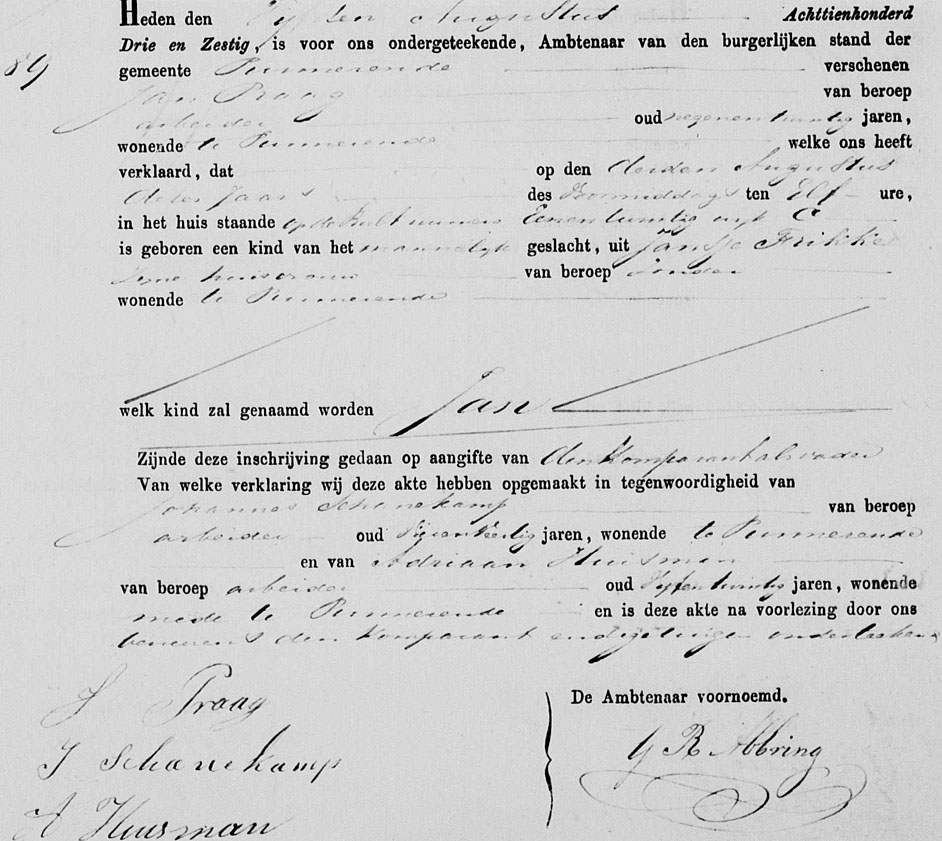 Heden den Vijfden Augustus Achttienhonderd
Drie en Zestig, is voor ons ondergeteekende, Ambtenaar van den burgerlijken stand der
89
gemeente Purmerende verschenen
Jan Praag van beroep
arbeider oud negenentwintig jaren,
wonende te Purmerende welke ons heeft
verklaard, dat op den derden Augustus
dezes Jaars des Voormiddags ten Elf ure,
in het huis staande op de Bult nummer Eenentwintig wijk C
is geboren een kind van het mannelijk geslacht, uit Jansje Frikke
zijne huisvrouw van beroep zonder
wonende te Purmerende
welk kind zal genaamd worden Jan
Zijnde deze inschrijving gedaan op aangifte van den Komparant als vader
Van welke verklaring wij deze akte hebben opgemaakt in tegenwoordigheid van
Johannes Schoenekamp van beroep
arbeider oud jaren, wonende te Purmerende
en van Adriaan Huisman
van beroep arbeider oud Vijfentwintig jaren, wonende
mede te Purmerende en is deze akte na voorlezing door ons
benevens den Komparant en de getuigen onderteekend
J Praag
De Ambtenaar voornoemd.
J Schoenekamp
G R Abbring
A Huisman